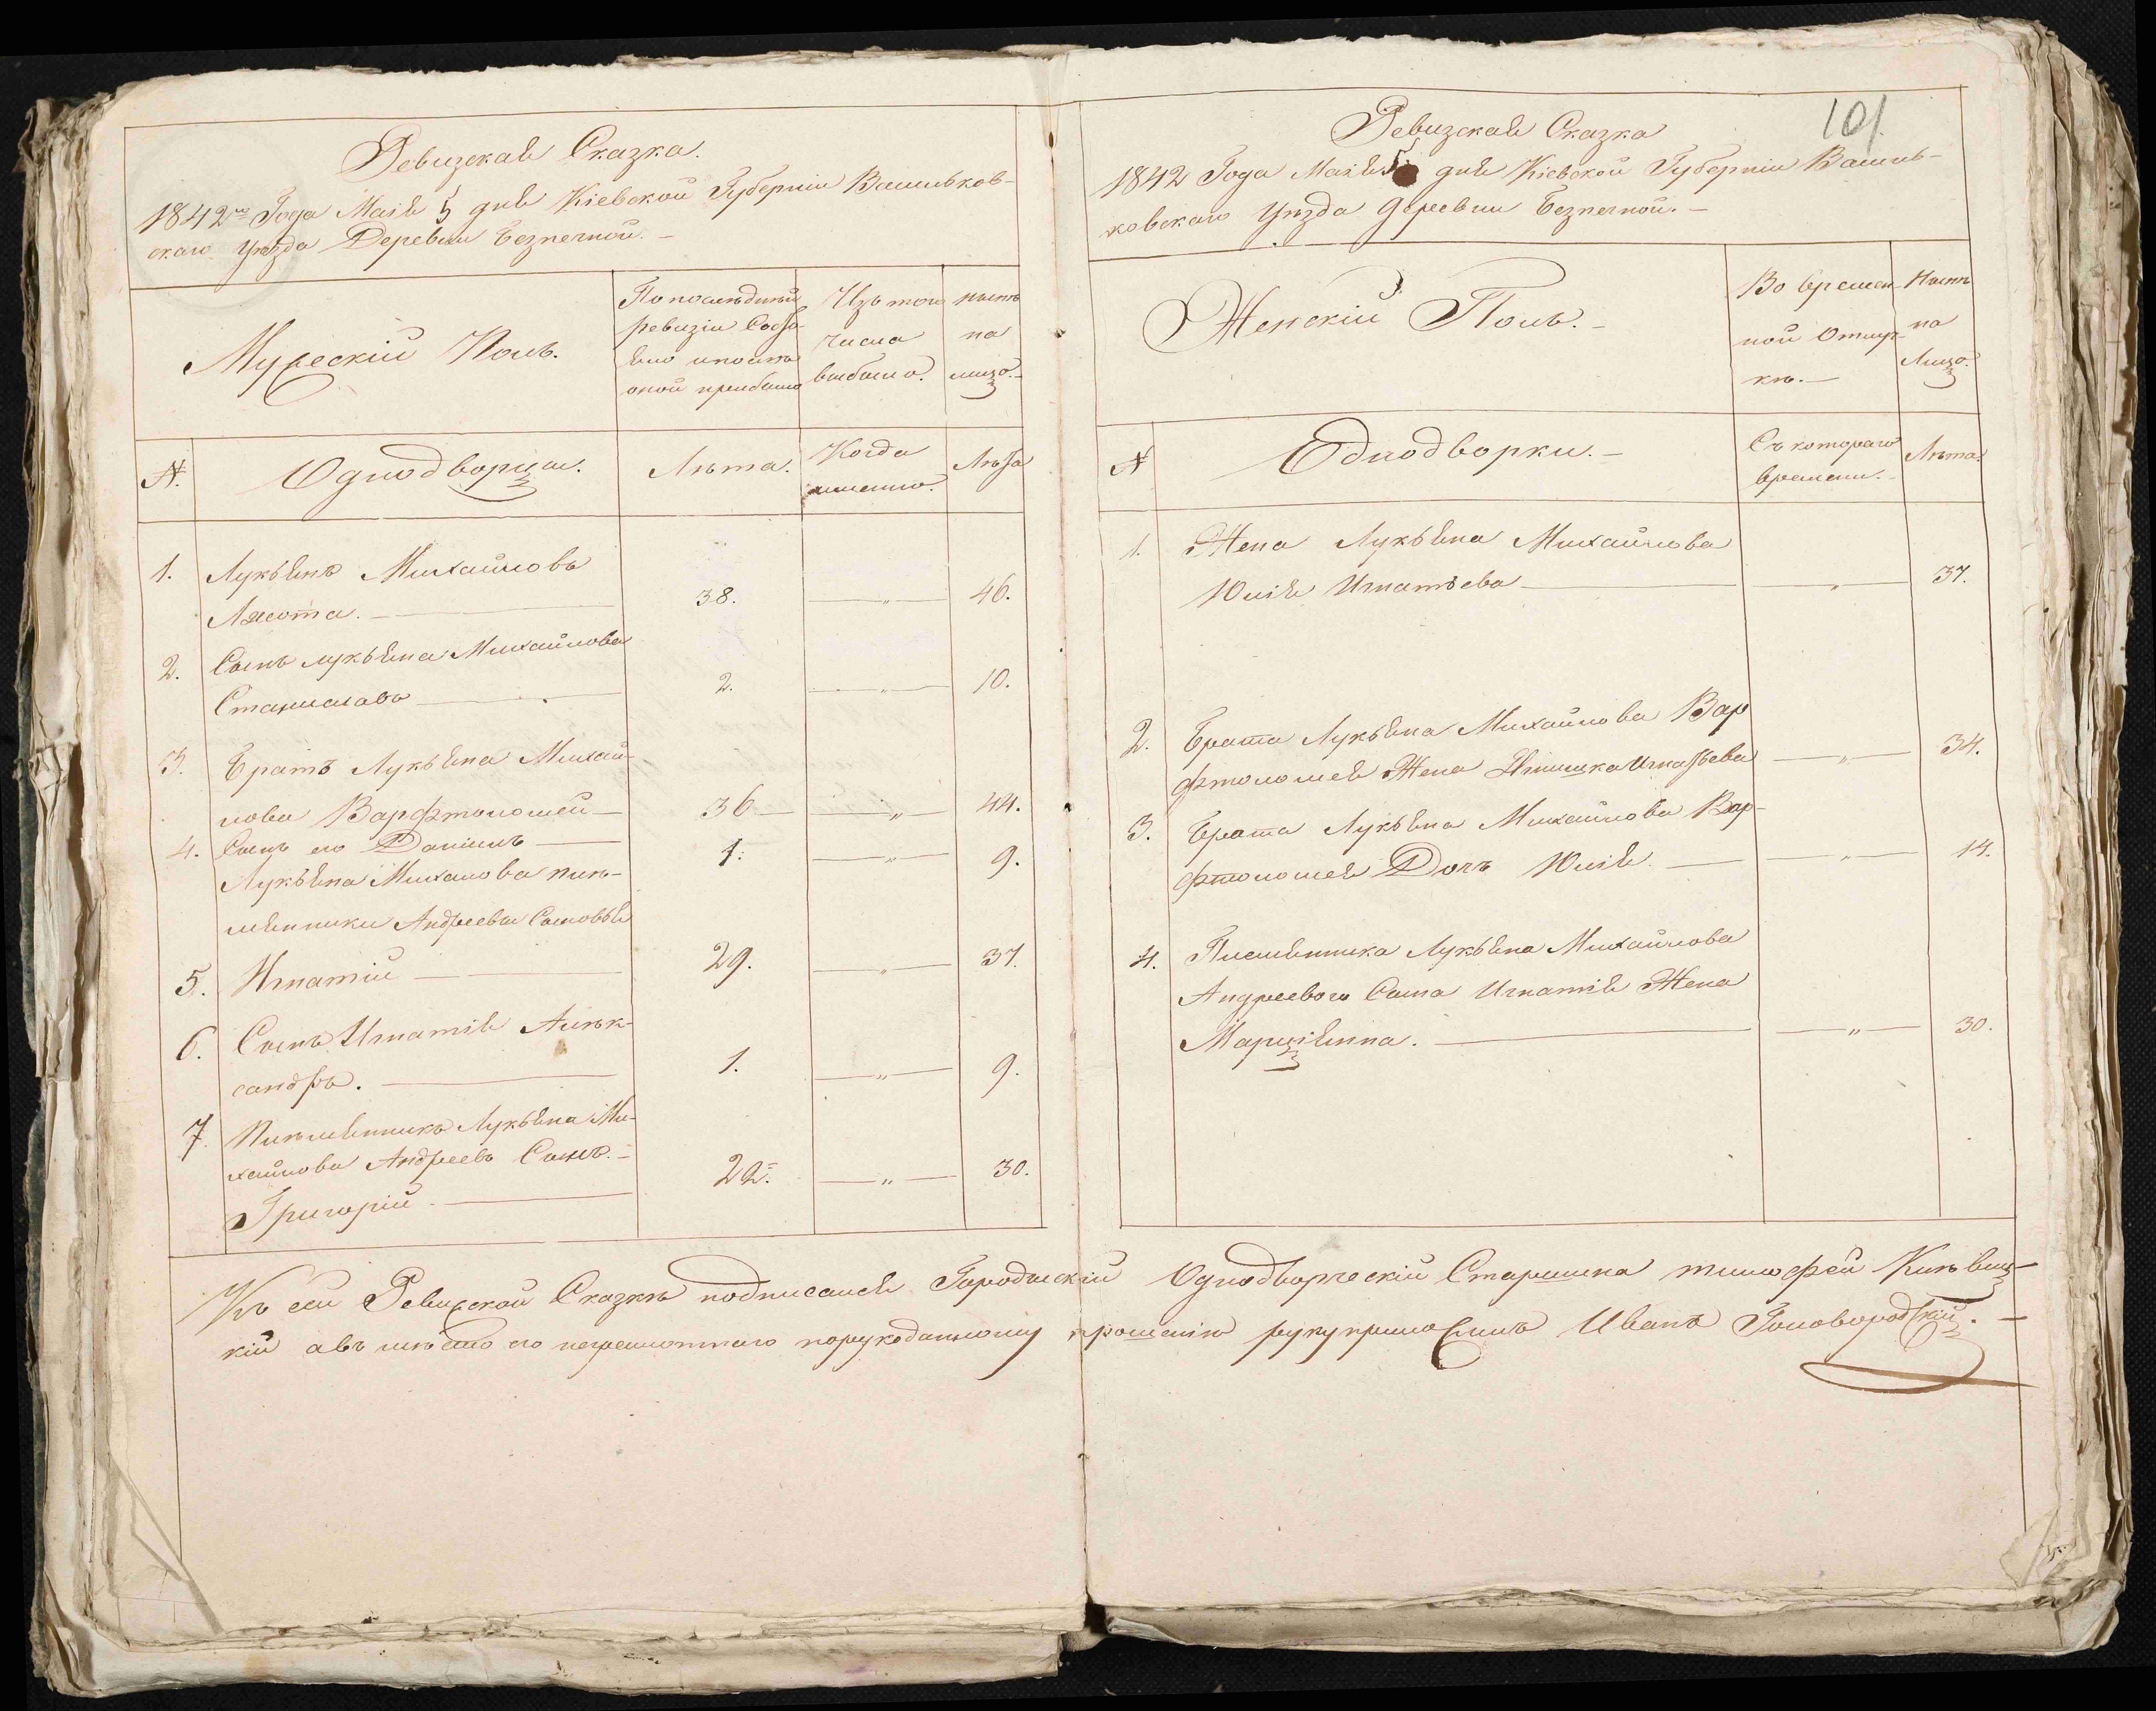 Ревизская Сказка.
1842го Года Маія 5 дня Кіевской Губерніи Васильков-
скаго Уѣзда Деревни Безпечной. -
Мужескій Полъ.
По послѣдней
ревизіи Состо-
яло и послѣ
оной прибыло
Изъ того
числа
выбыло.
нынѣ
на
лицо. -
№.
Однодворцы.
Лѣта.
Когда
именно.
Лѣта
1. Лукьянъ Михайловъ
Лясота. - 38. — „ — 46.
2. Сынъ Лукьяна Михайлова
Станиславъ — 2. — „ — 10.
3. Братъ Лукьяна Михай-
лова Варфтоломей — 36 — „ — 44.
4. Сынъ его Даніилъ — 1. — „ — 9.
Лукьяна Михалова плѣ-
мянники Андреевы Сыновья
5. Игнатій — 29. — „ — 37.
6. Сынъ Игнатія Алѣк-
сандръ. — 1. — „ — 9.
7. Плѣмянникъ Лукьяна Ми-
хайлова Андреевъ Сынъ. -
Григорій — 22. — „ — 30.
101
Ревизская Сказка
1842 Года Маія 5 дня Кіевской Губерніи Василь-
ковскаго Уѣзда Деревни Безпечной. -
Женскій Полъ. -
Во времен-
ной Отлуч-
кѣ. —
Нынѣ
на
Лицо.
№
Однодворки. -
Съ котораго
времени. -
Лѣта.
1. Жена Лукьяна Михайлова
Юлія Игнатьева — „ — 37.
2. Брата Лукьяна Михайлова Вар
фтоломея Жена Игнатьева — „ — 34.
3. Брата Лукьяна Михайлова Вар-
фтоломея Дочь Юлія — „ — 14.
4. Племянника Лукьяна Михайлова
Андреевого Сына Игнатія Жена
Марціянна. — „ — 30.
Къ сей Ревизской Сказкѣ подписался Городиский Однодворческій Старшина тимофей
кій а въ мѣсто его неграмотнаго по рукоданному прошенію руку приложилъ Иванъ